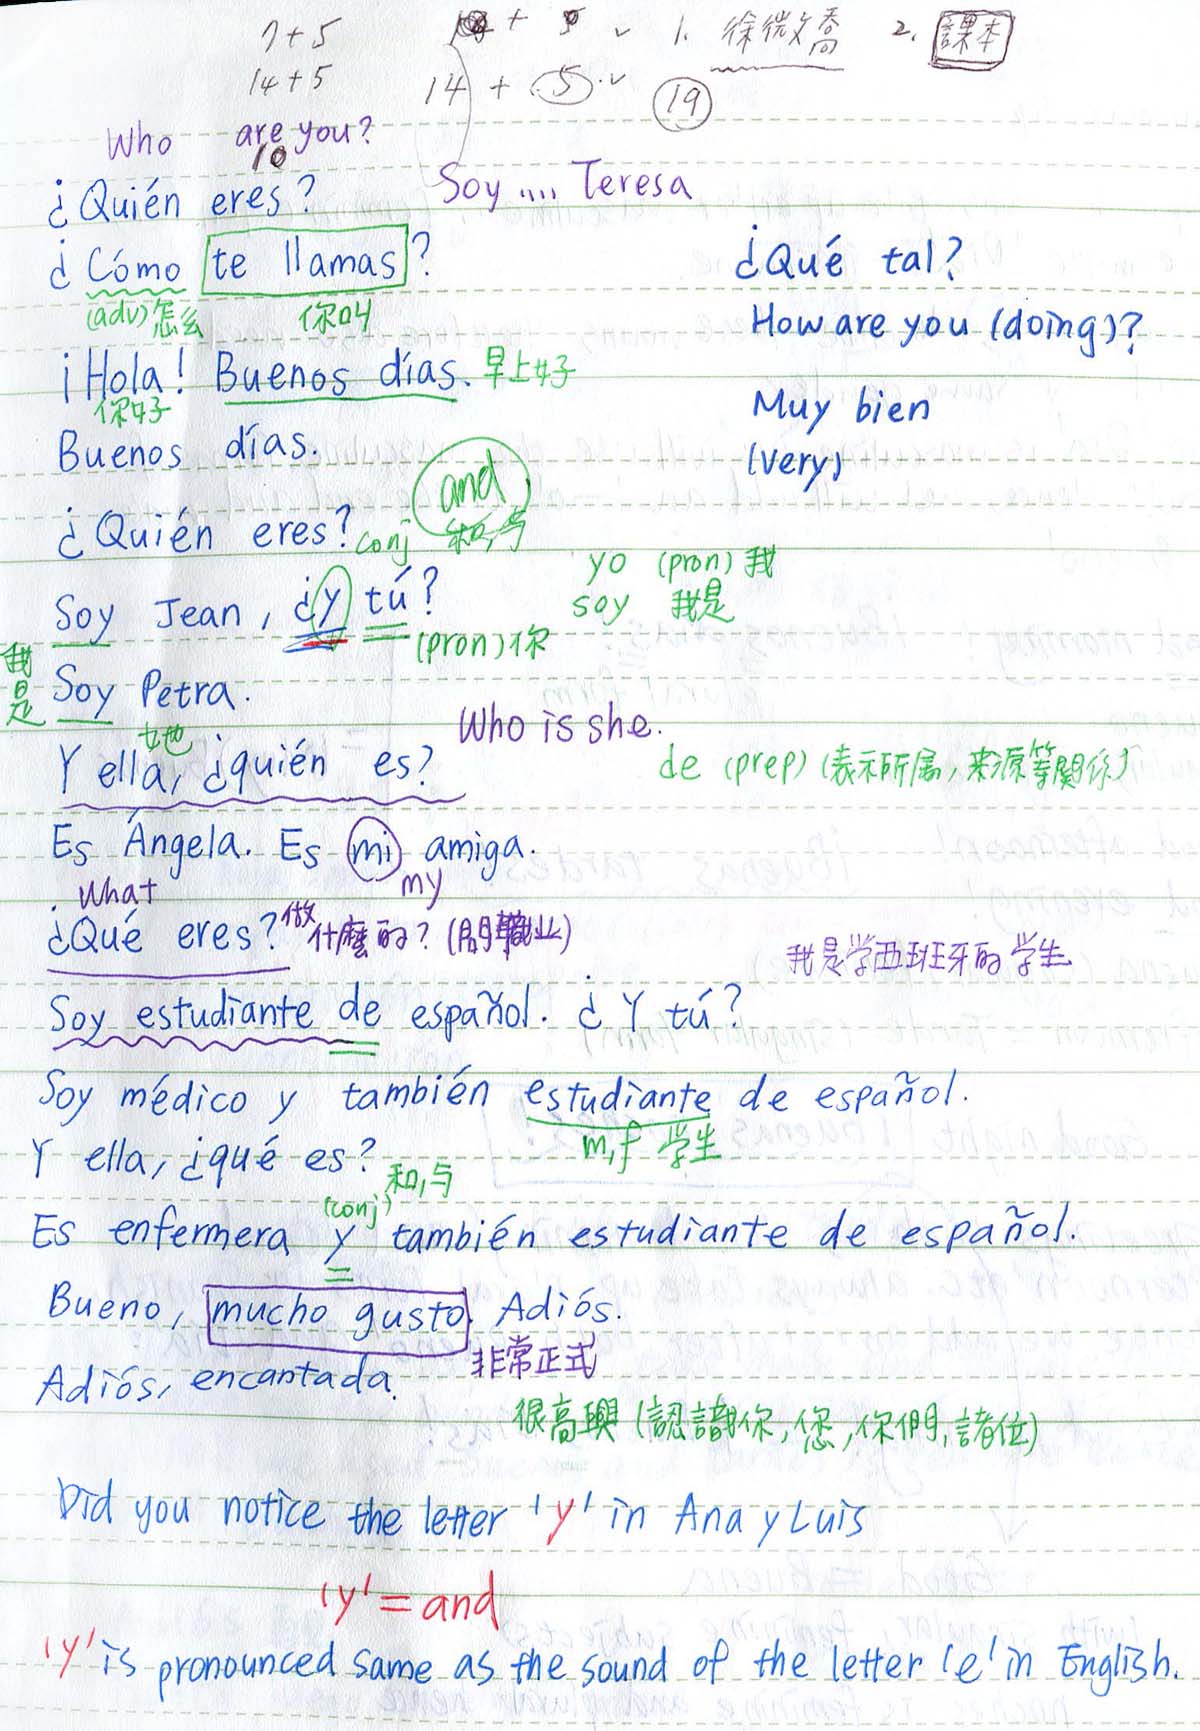 7+5
14+5
+ 5 ✓ 1. 徐微喬 2. 課本
14 + 5 ✓ 19
Who are you?
10
¿Quién eres?
Soy .... Teresa
¿Cómo te llamas?
(adv) 怎么 你叫
¿Qué tal?
How are you (doing)?
¡Hola! Buenos días. 早上好
你好
Muy bien
(very)
Buenos días.
and
¿Quién eres? conj 和,与
yo (pron) 我
soy 我是
Soy Jean, ¿y tú?
(pron) 你
我是
Soy Petra.
她
Who is she.
Y ella, ¿quién es?
de (prep) (表示所属, 来源等關係)
Es Ángela. Es mi amiga.
my
What
¿Qué eres? 做什麼的? (問職业)
我是学西班牙的学生
Soy estudiante de español. ¿Y tú?
Soy médico y también estudiante de español.
m,f 学生
Y ella, ¿qué es?
(conj) 和,与
Es enfermera y también estudiante de español.
Bueno, mucho gusto. Adiós.
非常正式
Adiós, encantada.
很高興 (認識你, 您, 你們, 諸位)
Did you notice the letter 'y' in Ana y Luis
'y' = and
'y' is pronounced same as the sound of the letter 'e' in English.